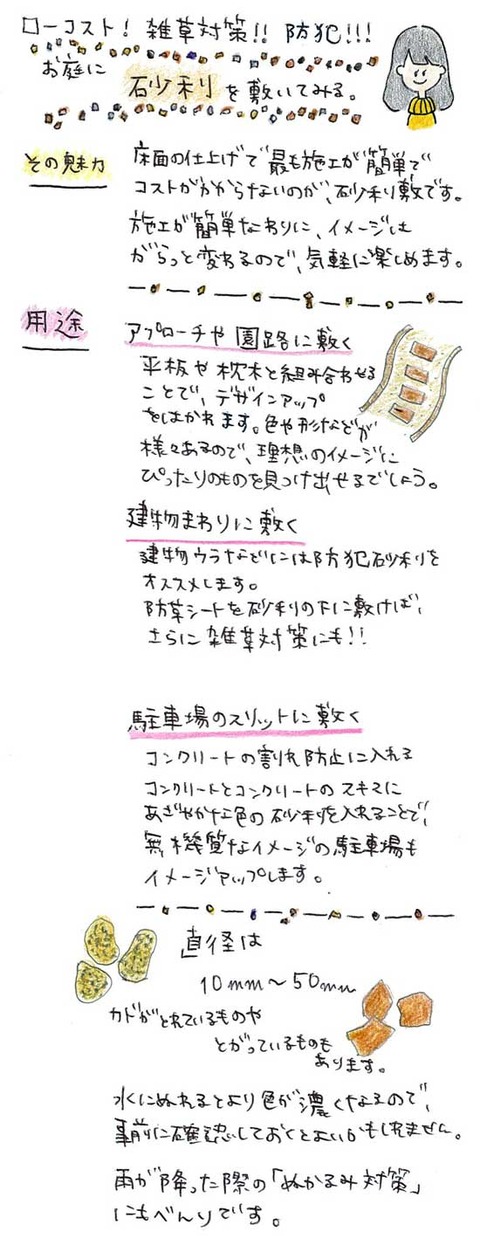 ローコスト！雑草対策！！防犯！！！
お庭に砂利を敷いてみる。
その魅力
床面の仕上げで最も施工が簡単で
コストがかからないのが、砂利敷です。
施工が簡単なわりに、イメージは
がらっと変わるので、気軽に楽しめます。
用途
アプローチや園路に敷く
平板や枕木と組み合わせる
ことで、デザインアップ
をはかれます。色や形などが
様々あるので、理想のイメージに
ぴったりのものを見つけ出せるでしょう。
建物まわりに敷く
建物ウラなどには防犯砂利を
オススメします。
防草シートを砂利の下に敷けば、
さらに雑草対策にも！！
駐車場のスリットに敷く
コンクリートの割れ防止に入れる
コンクリートとコンクリートのスキマに
あざやかな色の砂利を入れることで、
無機質なイメージの駐車場も
イメージアップします。
直径は
10mm～50mm
カドがとれているものや
とがっているものも
あります。
水にぬれるとより色が濃くなるので、
事前に確認しておくとよいかもしれません。
雨が降った際の「ぬかるみ対策」
にもべんりです。